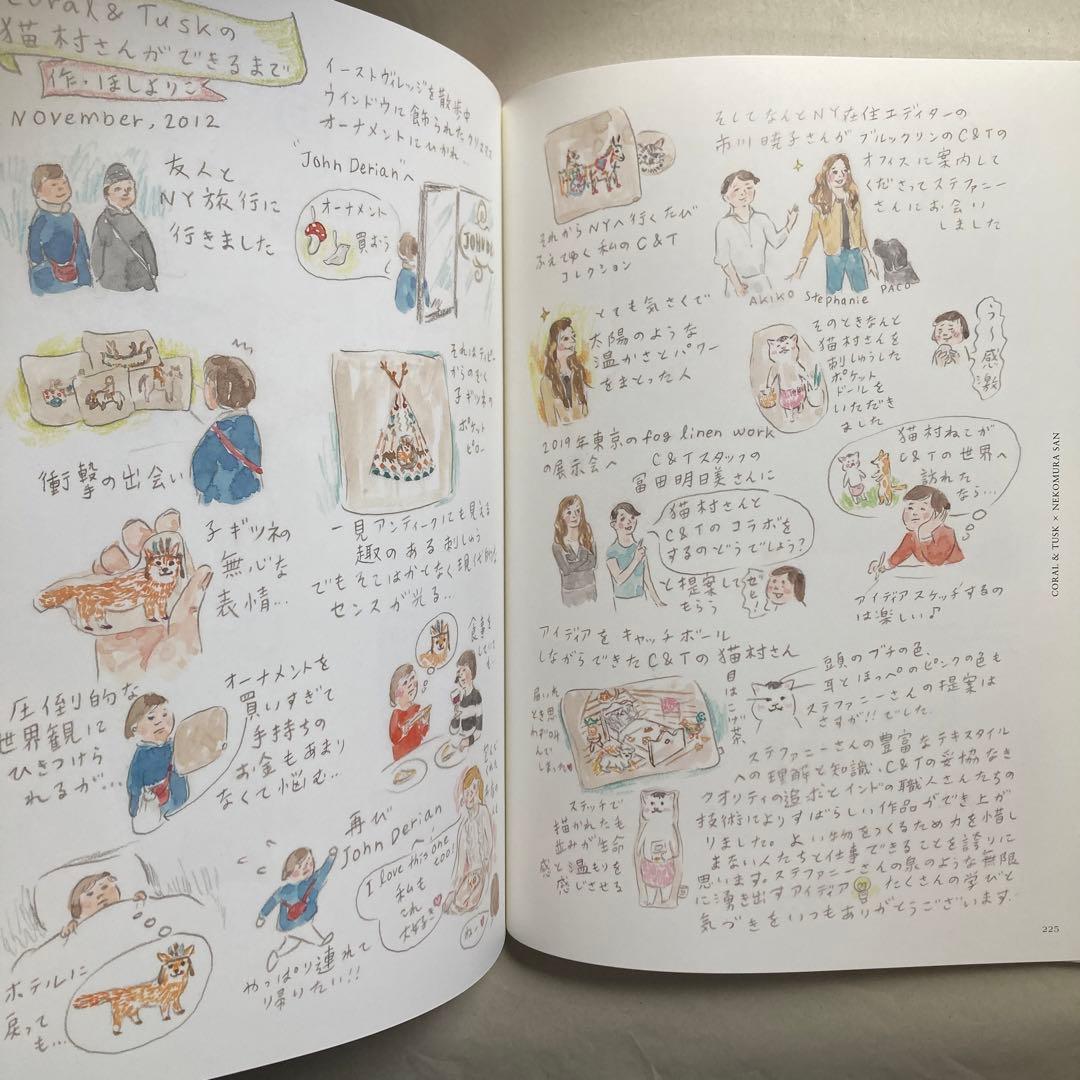 Coral & Tuskの
猫村さんができるまで
作・ほしよりこ
November, 2012
友人と
NY旅行に
行きました
イーストヴィレッジを散歩中
ウインドウに飾られたクリスマス
オーナメントにひかれ…
"John Derian"へ
オーナメント
買おう
衝撃の出会い
それはティピー
からのぞく
子ギツネの
ポケット
ピロー
子ギツネの
無心な
表情…
一見アンティークにも見える
趣のある刺しゅう
でもそこはかとなく現代的な
センスが光る…
圧倒的な
世界観に
ひきつけら
れるが…
オーナメントを
買いすぎて
手持ちの
お金もあまり
なくて悩む…
食事を
していても…
ホテルに
戻って
も…
再び
John Derian
へ
やっぱり連れて
帰りたい!!
I love this one
too!
私も
これ
大好き
それからNYへ行くたび
ふえてゆく私のC&T
コレクション
そしてなんとNY在住エディターの
市川暁子さんがブルックリンのC&Tの
オフィスに案内して
くださってステファニー
さんにお会い
しました
AKIKO Stephanie PACO
とても気さくで
太陽のような
温かさとパワー
をまとった人
そのときなんと
猫村さんを
刺しゅうした
ポケット
ドールを
いただき
ました
う〜感激
2019年東京のfog linen work
の展示会へ C&Tスタッフの
冨田明日美さんに
猫村さんと
C&Tのコラボを
するのどうでしょう?
と提案して
もらう
ゼヒ!
猫村ねこが
C&Tの世界へ
訪れた
なら…
アイディアスケッチするの
は楽しい♪
アイディアをキャッチボール
しながらできたC&Tの猫村さん
届いた
とき思
わず叫
んで
しまった
目はこげ茶
頭のブチの色、
耳とほっぺのピンクの色も
ステファニーさんの提案は
さすが!!でした。
ステッチで
描かれた毛
並みが生命
感と温もりを
感じさせる
ステファニーさんの豊富なテキスタイル
への理解と知識、C&Tの妥協なき
クオリティの追求とインドの職人さんたちの
技術によりすばらしい作品ができ上が
りました。よい物をつくるため力を惜し
まない人たちと仕事できることを誇りに
思います。ステファニーさんの泉のような無限
に湧き出すアイディア たくさんの学びと
気づきをいつもありがとうございます。
CORAL & TUSK × NEKOMURA SAN
225